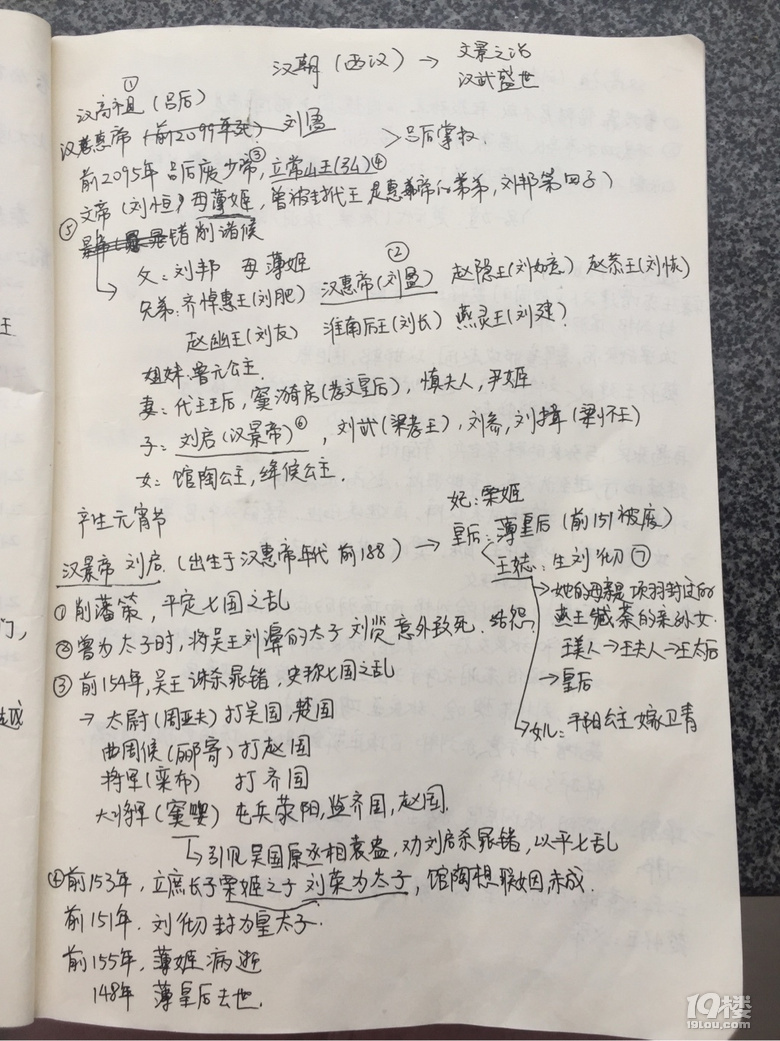 汉朝(西汉) → 文景之治
汉武盛世
①
汉高祖(吕后)
汉孝惠帝(前2099年死) 刘盈 >吕后掌权.
前2095年 吕后废少帝,③立常山王(弘)④
文帝(刘恒)母薄姬,曾被封代王 是惠帝的弟弟,刘邦第四子)
⑤ 晁错削诸侯
父:刘邦 母 薄姬 ②
兄弟:齐悼惠王(刘肥) 汉惠帝(刘盈) 赵隐王(刘如意) 赵恭王(刘恢)
赵幽王(刘友) 淮南后王(刘长) 燕灵王(刘建)
姐妹:鲁元公主.
妻:代王王后,窦漪房(孝文皇后),慎夫人,尹姬
子:刘启(汉景帝)⑥,刘武(梁孝王),刘参,刘揖(梁怀王)
女:馆陶公主,绛候公主.
产生元宵节
妃:栗姬
皇后:薄皇后(前151被废)
汉景帝 刘启.(出生于汉惠帝年代 前188) →
王娡:生刘彻⑦
→她的母亲是项羽封过的
燕王臧荼的亲孙女.
王美人→王夫人→王太后
→皇后
→女儿:平阳公主嫁卫青
①削藩策,平定七国之乱
②曾为太子时,将吴王刘濞的太子 刘贤意外致死.结怨
③前154年,吴王诛杀晁错,史称七国之乱
→ 太尉(周亚夫)打吴国,楚国
曲周候(郦寄)打赵国
将军(栾布) 打齐国
大将军(窦婴)屯兵荥阳,监齐国,赵国.
→引见吴国原丞相袁盎,劝刘启杀晁错,以平七乱
④前153年,立庶长子栗姬之子 刘荣为太子,馆陶想联姻,未成.
前151年.刘彻封为皇太子.
前155年,薄姬病逝
148年 薄皇后去世.
王
门,
越
19楼
19lou.com